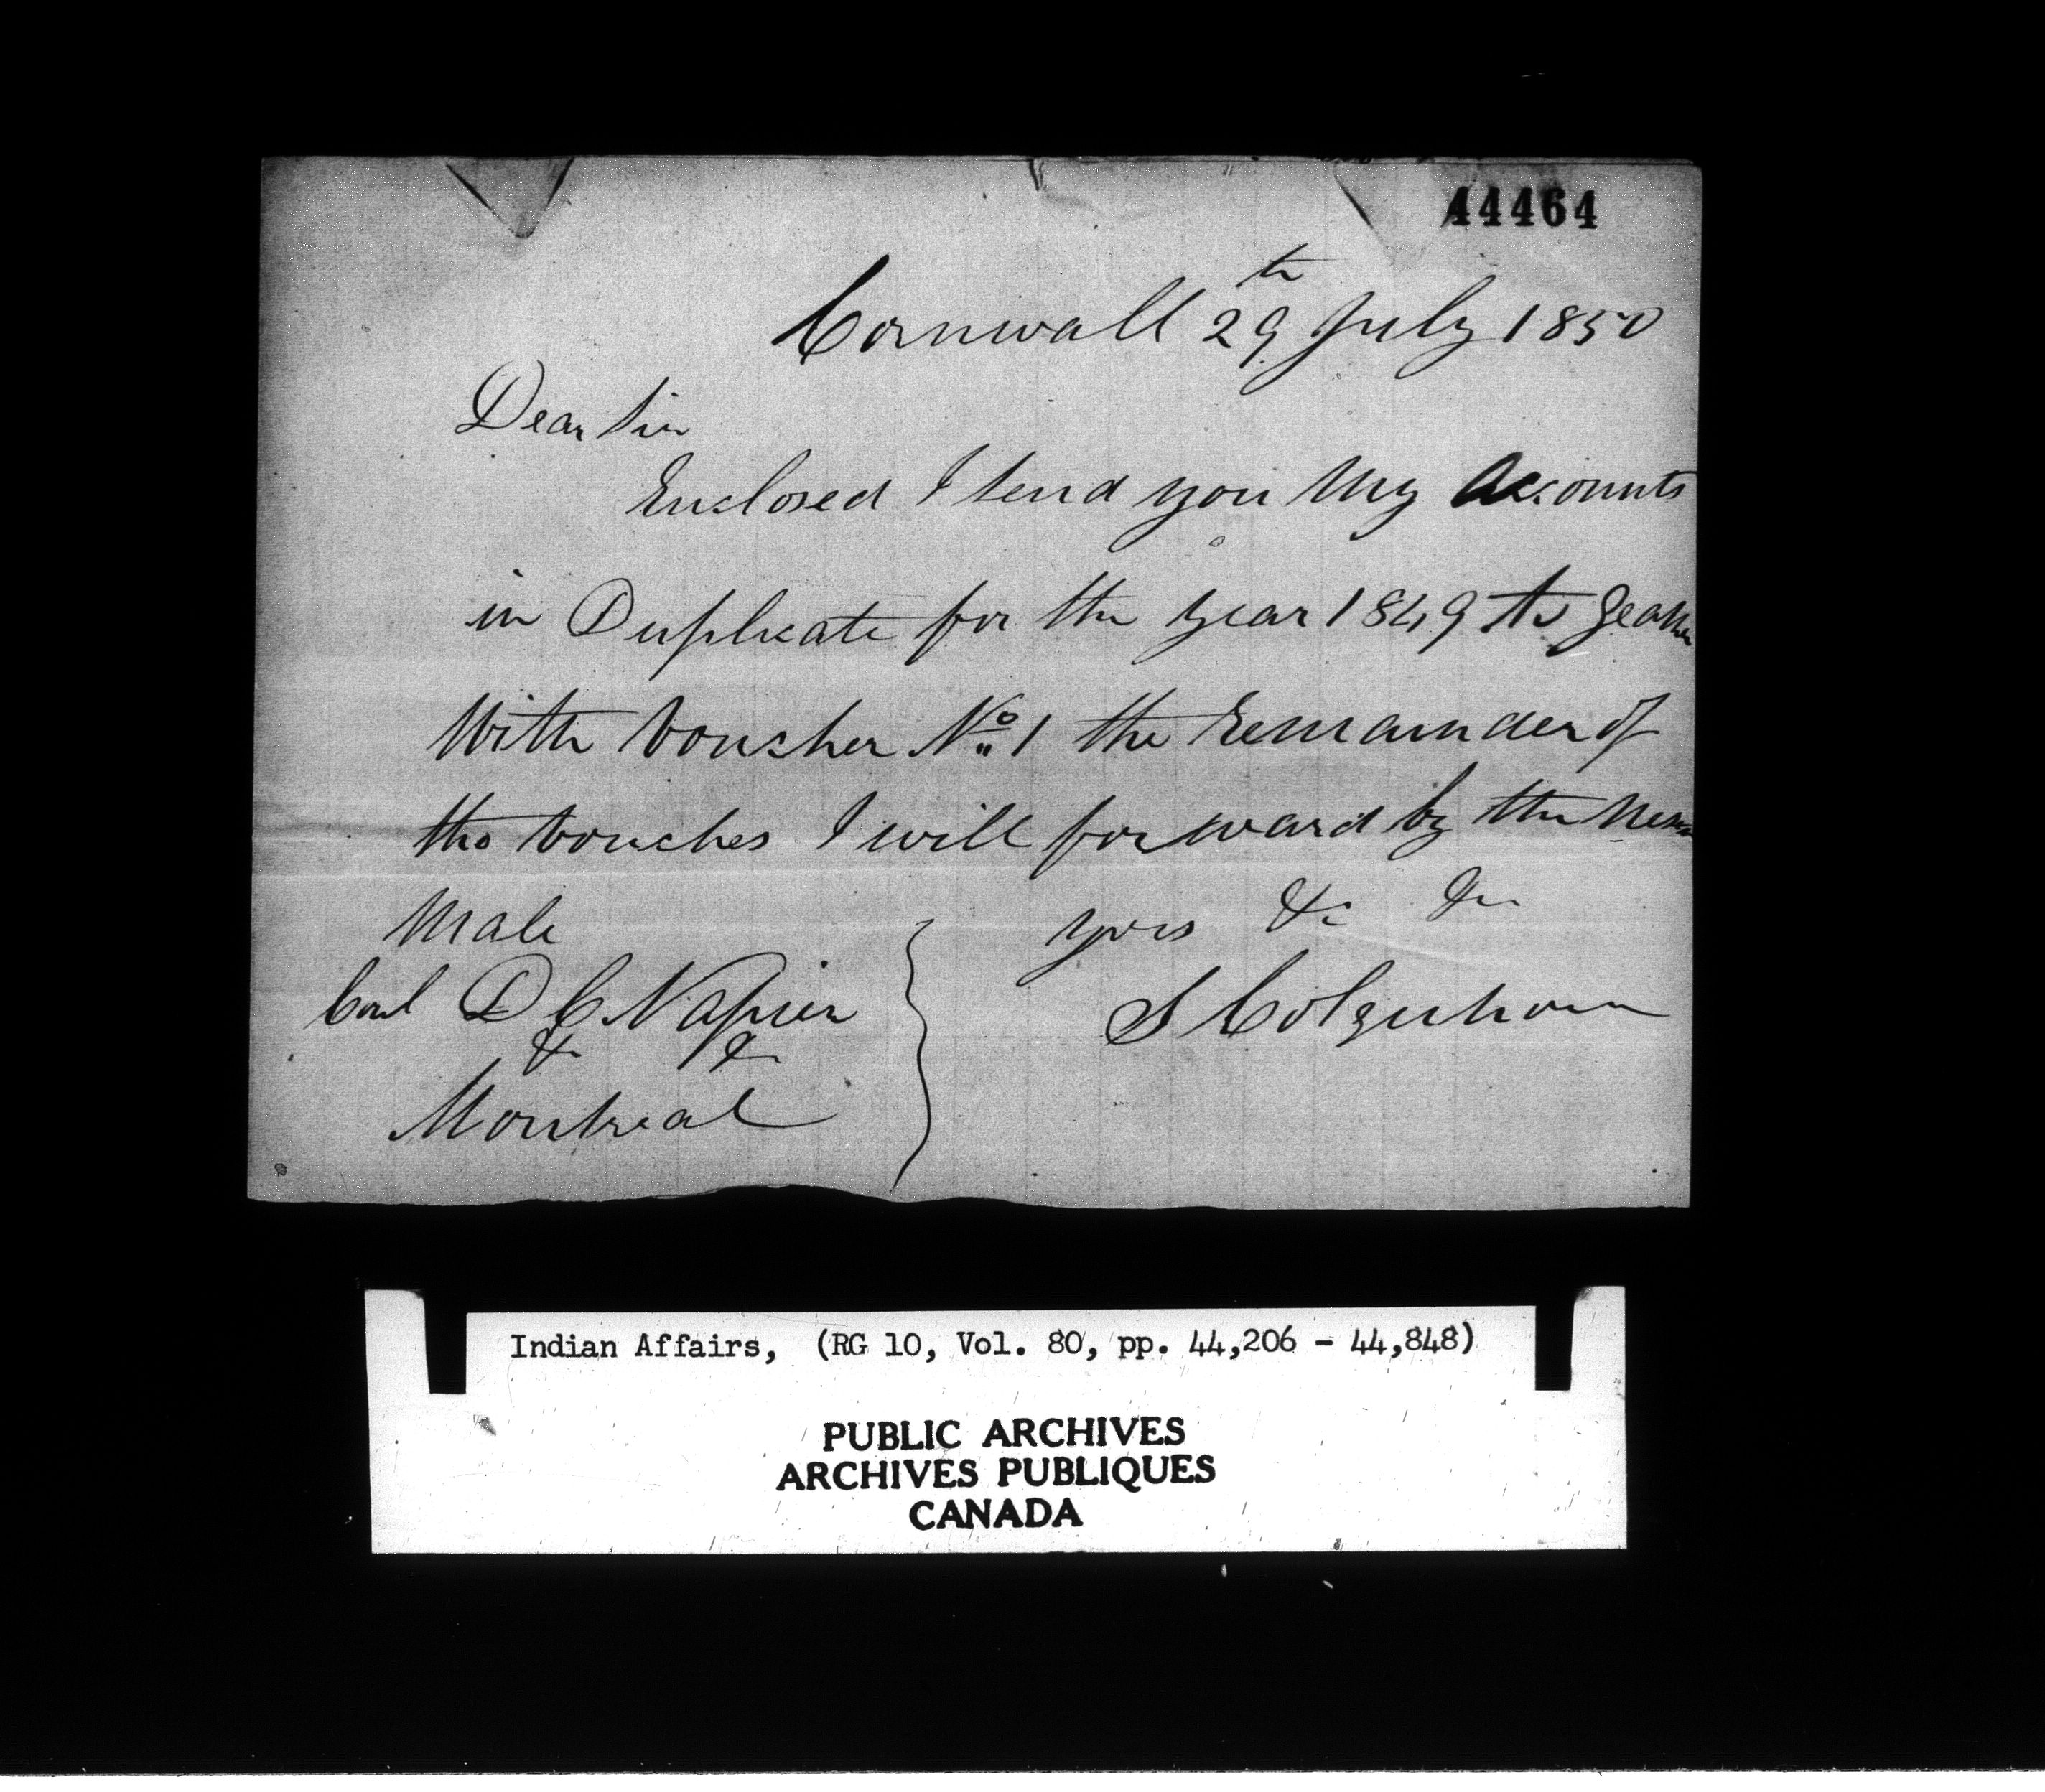 44464
Cornwall 29th July 1850
Dear Sir
Enclosed I send you My Accounts
in Duplicate for the year 1849
With Voucher No 1 the remainder of
the vouches I will forward by the
Male yours &c &c
Conl D C Napier
&c &c
S Colquhoun
Montreal
Indian Affairs, (RG 10, Vol. 80, pp. 44,206 - 44,848)
PUBLIC ARCHIVES
ARCHIVES PUBLIQUES
CANADA